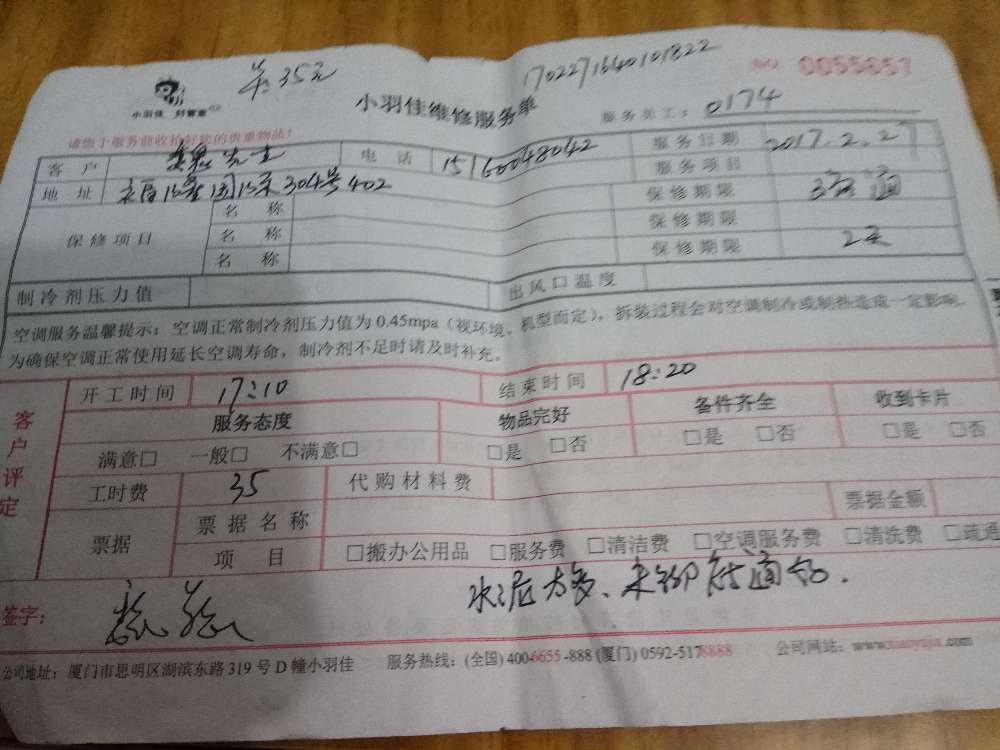 共:35元
1702271640101822
NO 0055851
小羽佳 好管家
小羽佳维修服务单
服务员工: 0174
请您于服务前收拾好您的贵重物品!
客户 先生 电话 15160048042 服务日期 2017.2.27
地址 园 304号402 服务项目
保修项目 名称 保修期限
名称 保修期限
名称 保修期限 2天
制冷剂压力值 出风口温度
空调服务温馨提示: 空调正常制冷剂压力值为0.45mpa (视环境、机型而定)。拆装过程会对空调制冷或制热造成一定影响。
为确保空调正常使用延长空调寿命,制冷剂不足时请及时补充。
客户评定
开工时间 17:10 结束时间 18:20
服务态度 物品完好 备件齐全 收到卡片
满意□ 一般□ 不满意□ □是 □否 □是 □否 □是 □否
工时费 35 代购材料费
票据 票据名称 票据金额
项目 □搬办公用品 □服务费 □清洁费 □空调服务费 □清洗费 □疏通
水泥太多、未
签字:
公司地址: 厦门市思明区湖滨东路319号D幢小羽佳 服务热线: (全国) 400-6655-888 (厦门) 0592-5178888 公司网站: www.xiaoyujia.com